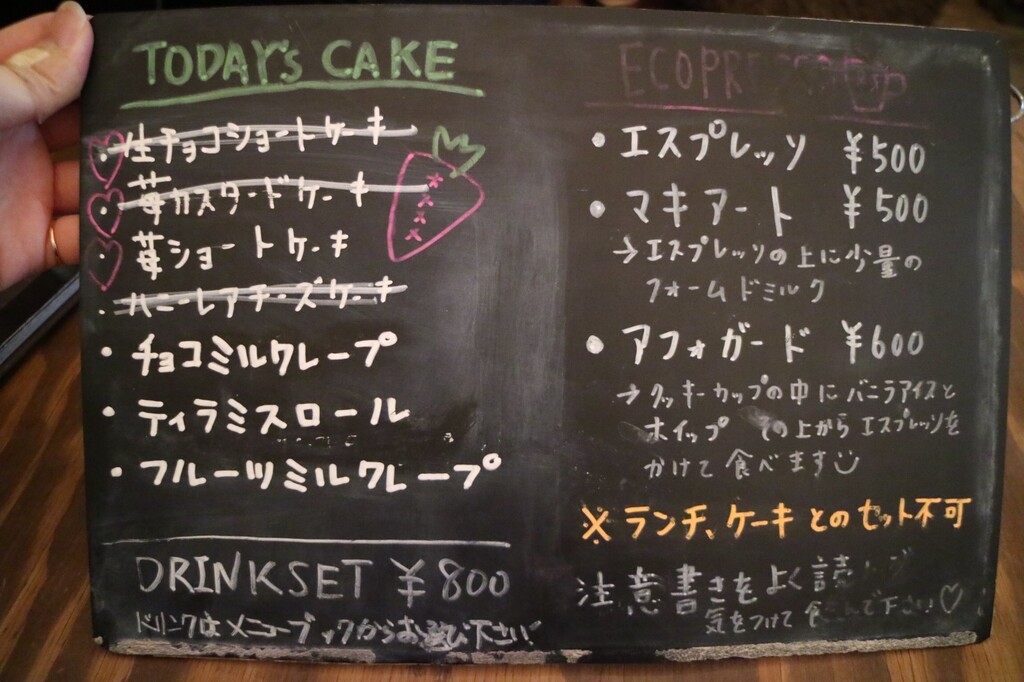 TODAY's CAKE
・生チョコショートケーキ
・苺カスタードケーキ
・苺ショートケーキ
・ハニーレアチーズケーキ
・チョコミルクレープ
・ティラミスロール
・フルーツミルクレープ
DRINKSET ¥800
ドリンクはメニューブックからお選び下さい
• エスプレッソ ¥500
• マキアート ¥500
→エスプレッソの上に少量の
フォームドミルク
• アフォガード ¥600
→クッキーカップの中にバニラアイスと
ホイップ その上からエスプレッソを
かけて食べます
※ランチ、ケーキとのセット不可
注意書きをよく読
気をつけて 下さい♡